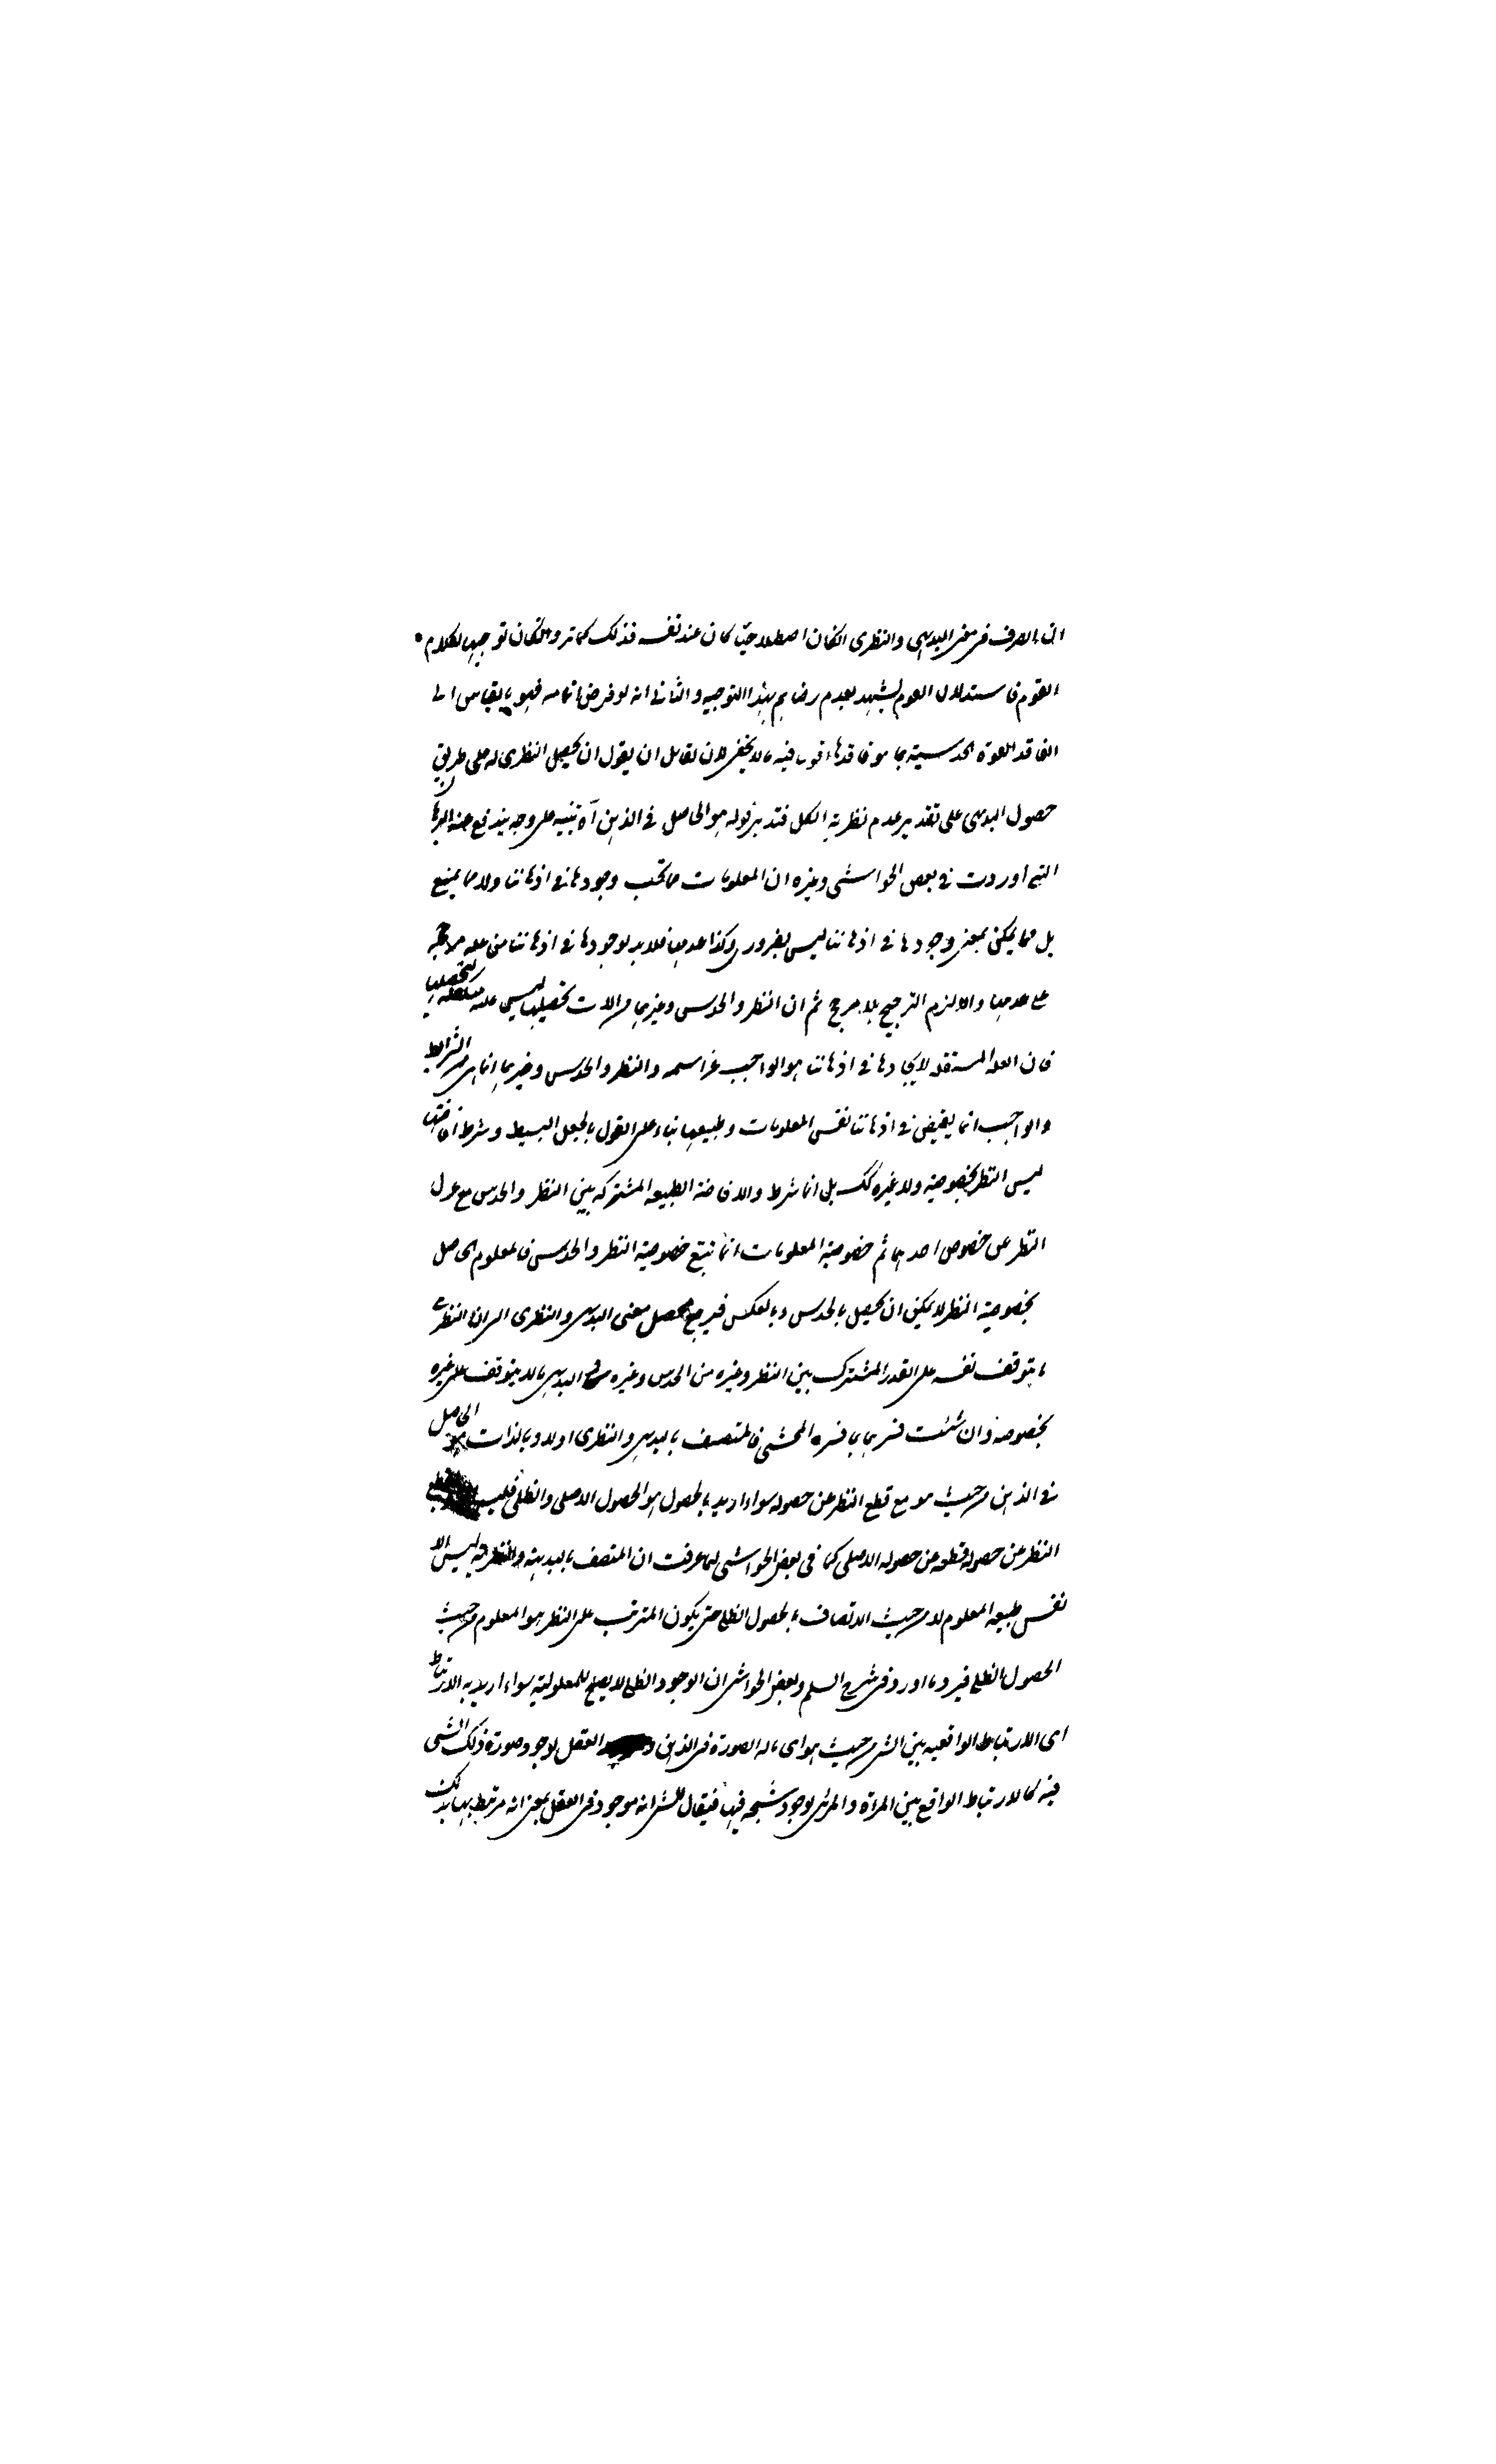 ان الصرف في معنى البديهي والنظري ان كان اصطلاحيا كان عند نفسه فذلك كما تر وان كان توجيها لكلام
القوم فاستدلال القوم يشهد بعدم رضاهم بهذا التوجيه والثاني انه لو فرض تمامه فهو بالقياس الى
الفاقد للقوة الحدسية بما هو فاقدها اقول فيه ما لا يخفى لان لقائل ان يقول ان يحصل النظري له على طريق
حصول البديهي على تقدير عدم نظرية الكل فتدبر قوله هو الحاصل في الذهن آه تنبيه على وجه يندفع عنه
التي اوردت في بعض الحواشي وغيره ان المعلومات ما تحب وجودها في اذهاننا ولا مما يمنع
بل مما يمكن بمعنى وجودها في اذهاننا ليس بضروري وكذا عدمها فلابد لوجودها في اذهاننا من علة مرجحة
على عدمها والا لزم الترجيح بلا مرجح ثم ان النظر والحدس وغيرهما من الات تحصيلها ليس علة مستقلة لتحصيلها
فان العلة المستقلة لايجادها في اذهاننا هو الواجب عز اسمه والنظر والحدس وغيرهما انما هي من الشرائط
والواجب انما يفيض في اذهاننا نفس المعلومات وطبيعتها بناء على القول بالجعل البسيط وشرط افاضتها
ليس النظر بخصوصية ولا غيره كك بل انما شرط والافاضة الطبيعة المشتركة بين النظر والحدس مع عزل
النظر عن خصوص احدهما ثم خصوصية المعلومات انما تتبع خصوصية النظر والحدس فالمعلوم الحاصل
بخصوصية النظر لا يمكن ان يحصل بالحدس وبالعكس فيرجع محصل معنى البديهي والنظري الى ان النظري
ما يتوقف نفسه على القدر المشترك بين النظر وغيره من الحدس وغيره والبديهي ما لا يتوقف على غيره
بخصوصه وان شئت فسرهما بما فسره المحشي فالمتصف بالبديهي والنظري اولا وبالذات هو الحاصل
في الذهن من حيث هو مع قطع النظر عن حصوله سواء اريد بالحصول هو الحصول الاصلي والظلي فليس
النظر عن حصوله فقط عن حصوله الاصلي كما في بعض الحواشي لما عرفت ان المتصف بالبديهية والنظرية ليس الا
نفس طبيعة المعلوم لا من حيث الاتصاف بالحصول الظلي حتى يكون المترتب على النظر هو المعلوم من حيث
الحصول الظلي فيرد ما اورد في شرح السلم وبعض الحواشي ان الوجود الظلي لا يصلح للمعلولية سواء اريد به الارتباط
اى الارتباط الواقعية بين الشي من حيث هو اى ماله الصورة في الذهن و العقل لوجود صورة ذلك الشي
فيه كالارتباط الواقع بين المرآة والمرئي لوجود شبحه فيها فيقال للشي انه موجود في العقل بمعنى انه مرتبط بها بذلك